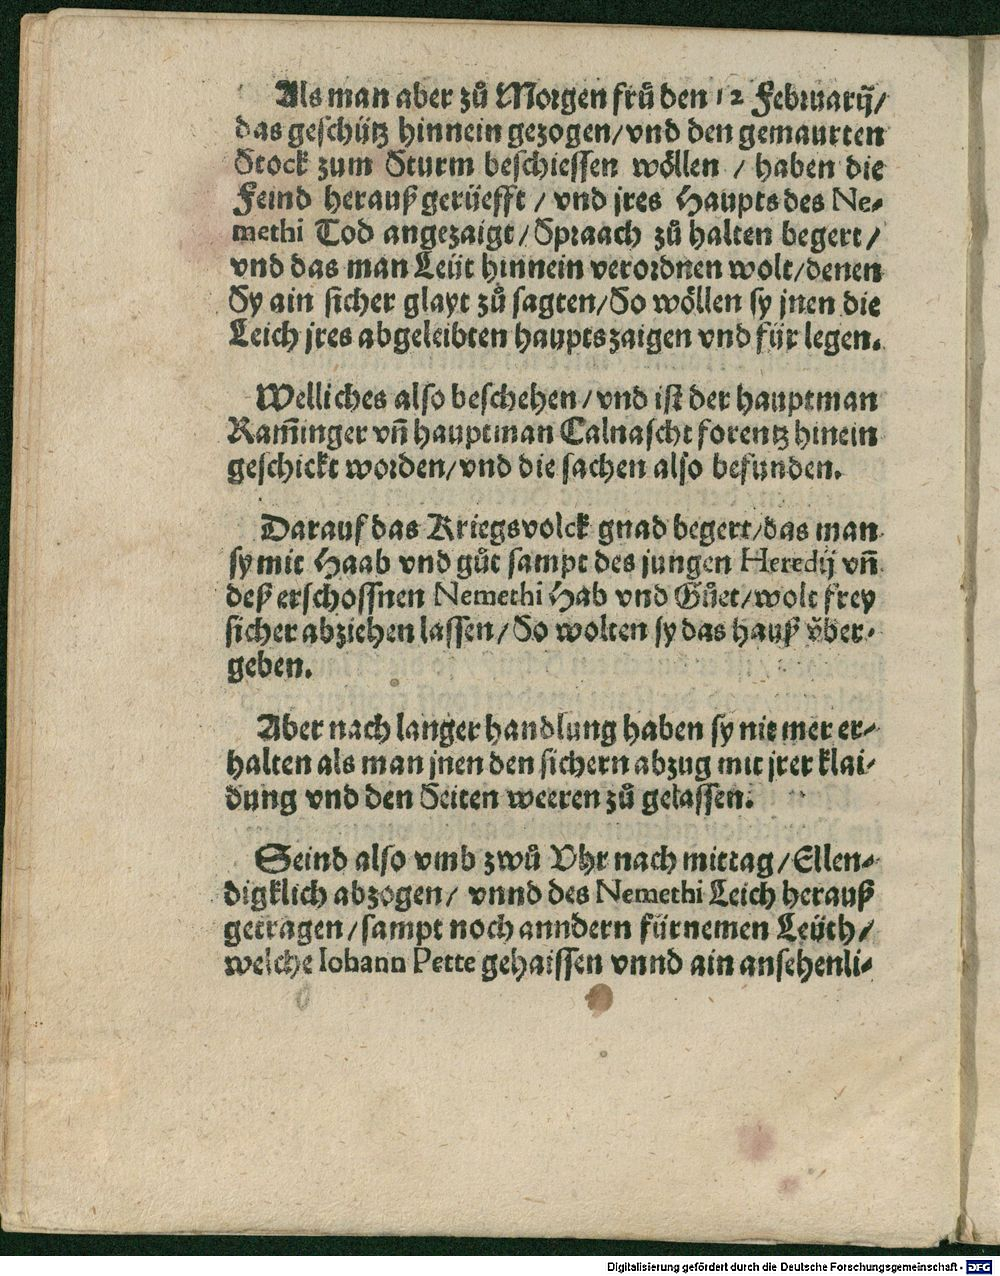 Als man aber zů Morgen frů den 12 Februarij/
das geschütz hinnein gezogen/vnd den gemaurten
Stock zum Sturm beschiessen wöllen / haben die
Feind herauß gerüefft / vnd jres Haupts des Ne⸗
methi Tod angezaigt/Spraach zů halten begert/
vnd das man Leüt hinnein verordnen wolt/denen
Sy ain sicher glayt zů sagten/So wöllen sy jnen die
Leich jres abgeleibten haupts zaigen vnd für legen.
Welliches also beschehen/vnd ist der hauptman
Ram̃inger vñ hauptman Calnascht forentz hinein
geschickt worden/vnd die sachen also befunden.
Darauf das Kriegsvolck gnad begert/das man
sy mit Haab vnd gůt sampt des jungen Heredij vñ
deß erschossnen Nemethi Hab vnd Gůet/wolt frey
sicher abziehen lassen/So wolten sy das hauß vͤber⸗
geben.
Aber nach langer handlung haben sy nit mer er⸗
halten als man jnen den sichern abzug mit jrer klai⸗
dung vnd den Seiten weeren zů gelassen.
Seind also vmb zwů Vhr nach mittag/Ellen⸗
digklich abzogen/ vnnd des Nemethi Leich herauß
getragen/sampt noch anndern fürnemen Leüth/
welche Iohann Pette gehaissen vnnd ain ansehenli⸗
Digitalisierung gefördert durch die Deutsche Forschungsgemeinschaft - DFG